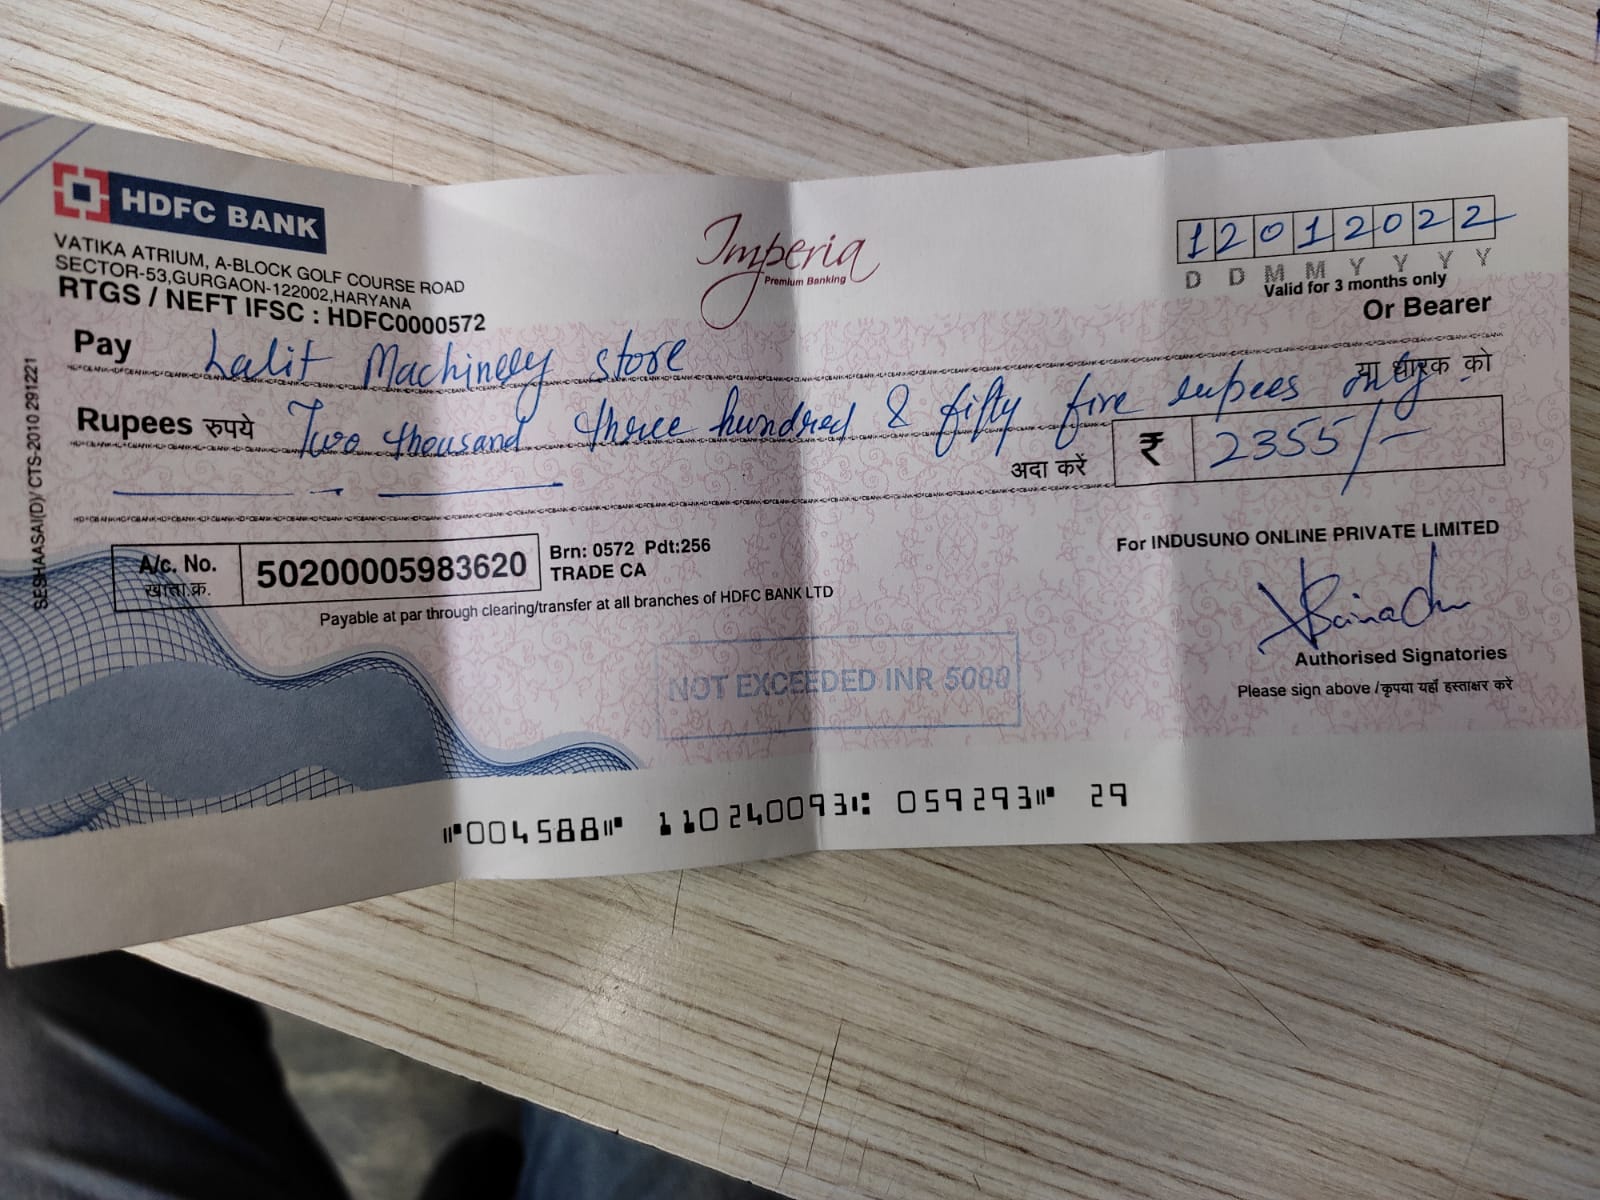 HDFC BANK
VATIKA ATRIUM, A-BLOCK GOLF COURSE ROAD
SECTOR-53,GURGAON-122002,HARYANA
RTGS / NEFT IFSC : HDFC0000572
Imperia
Premium Banking
12012022
D D M M Y Y Y Y
Valid for 3 months only
Or Bearer
Pay Lalit Machinery store
या धारक को
Rupees रुपये Two thousand three hundred & fifty five rupees only
अदा करें ₹ 2355/-
A/c. No.
खाता क्र.
50200005983620
Brn: 0572 Pdt:256
TRADE CA
Payable at par through clearing/transfer at all branches of HDFC BANK LTD
For INDUSUNO ONLINE PRIVATE LIMITED
Authorised Signatories
Please sign above /कृपया यहाँ हस्ताक्षर करें
NOT EXCEEDED INR 5000
⑈004588⑈ 110240093⑆ 059293⑈ 29
SESHAASAI(D)/ CTS-2010 291221